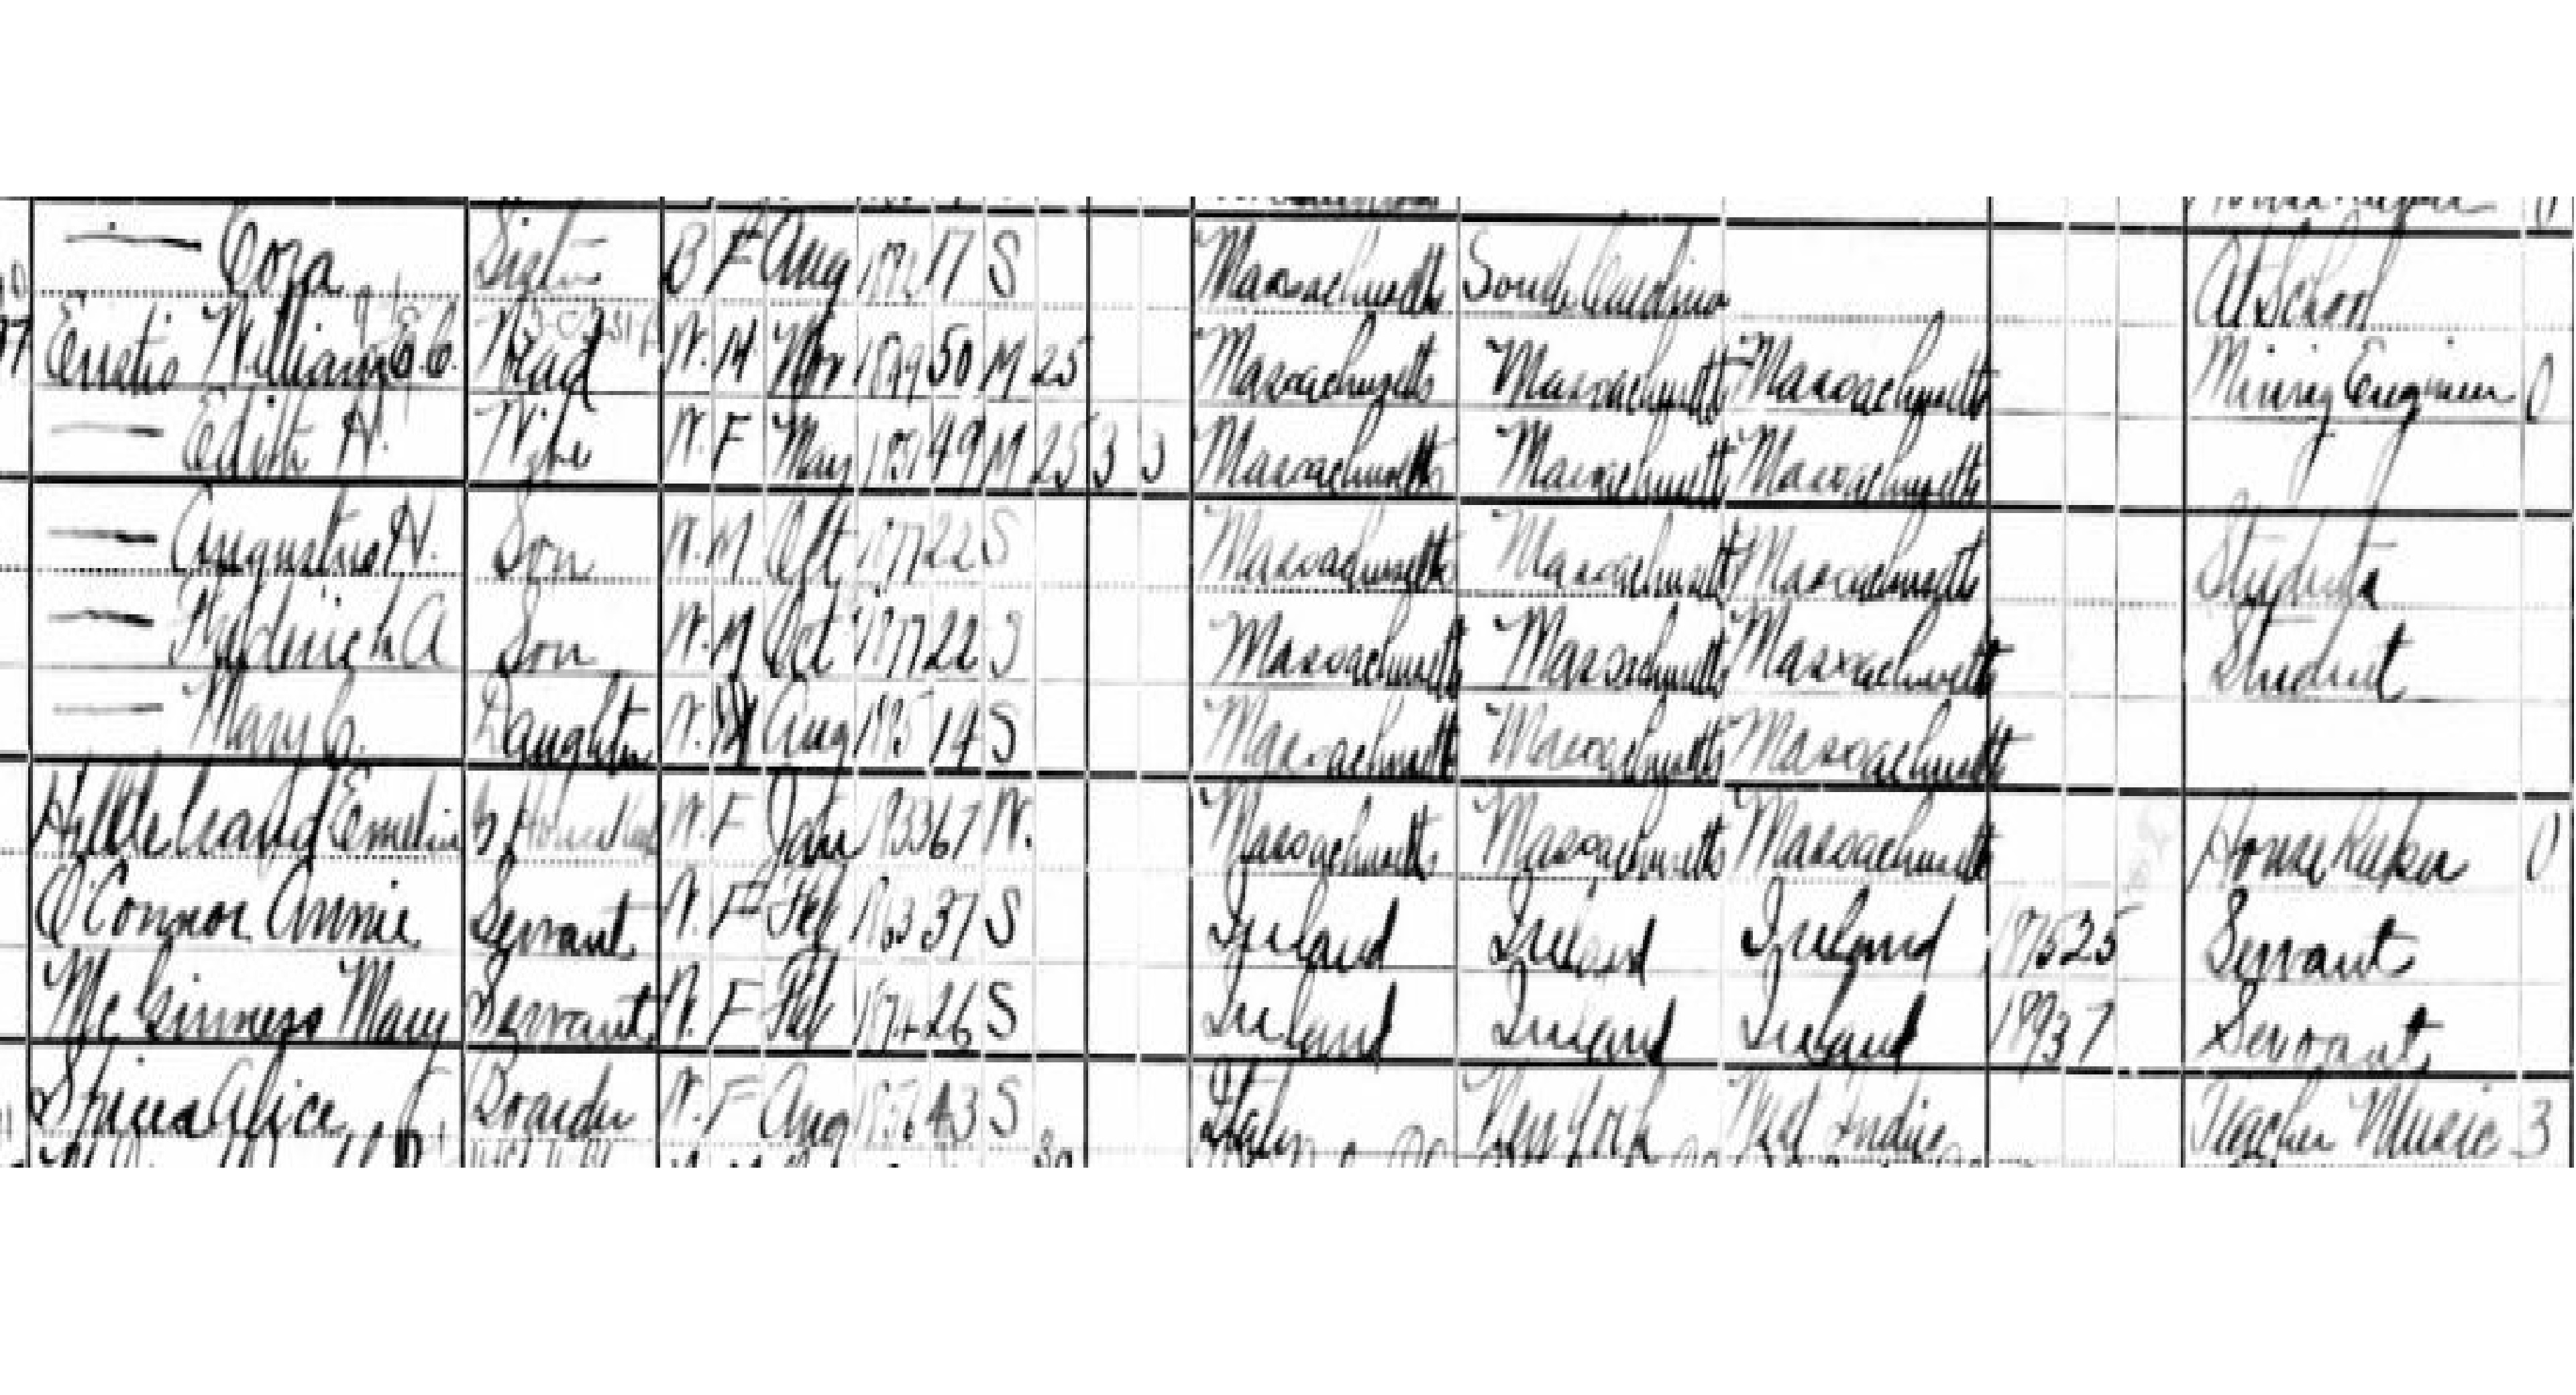 — Cora Sister B F Aug 1882 17 S Massachusetts South Carolina At School
Eustis William E. C. Head W. M Nov 1849 50 M 25 Massachusetts Massachusetts Massachusetts Mining Engineer 0
— Edith H. Wife W. F May 1851 49 M 25 3 3 Massachusetts Massachusetts Massachusetts
— Augustus H. Son W. M Oct 1877 22 S Massachusetts Massachusetts Massachusetts Student
— Frederick A Son W. M Oct 1877 22 S Massachusetts Massachusetts Massachusetts Student
— Mary Daughter W. Aug 1885 14 S Massachusetts Massachusetts Massachusetts
Emeline W. F Jan 1833 67 W. Massachusetts Massachusetts Massachusetts House Keeper 0
O'Connor Annie Servant W. F Feb 1863 37 S Ireland Ireland Ireland 1875 25 Servant
McGinness Mary Servant W. F Feb 1874 26 S Ireland Ireland Ireland 1893 7 Servant
Alice Boarder W. F Aug 43 S New York West Indies Teacher Music 3